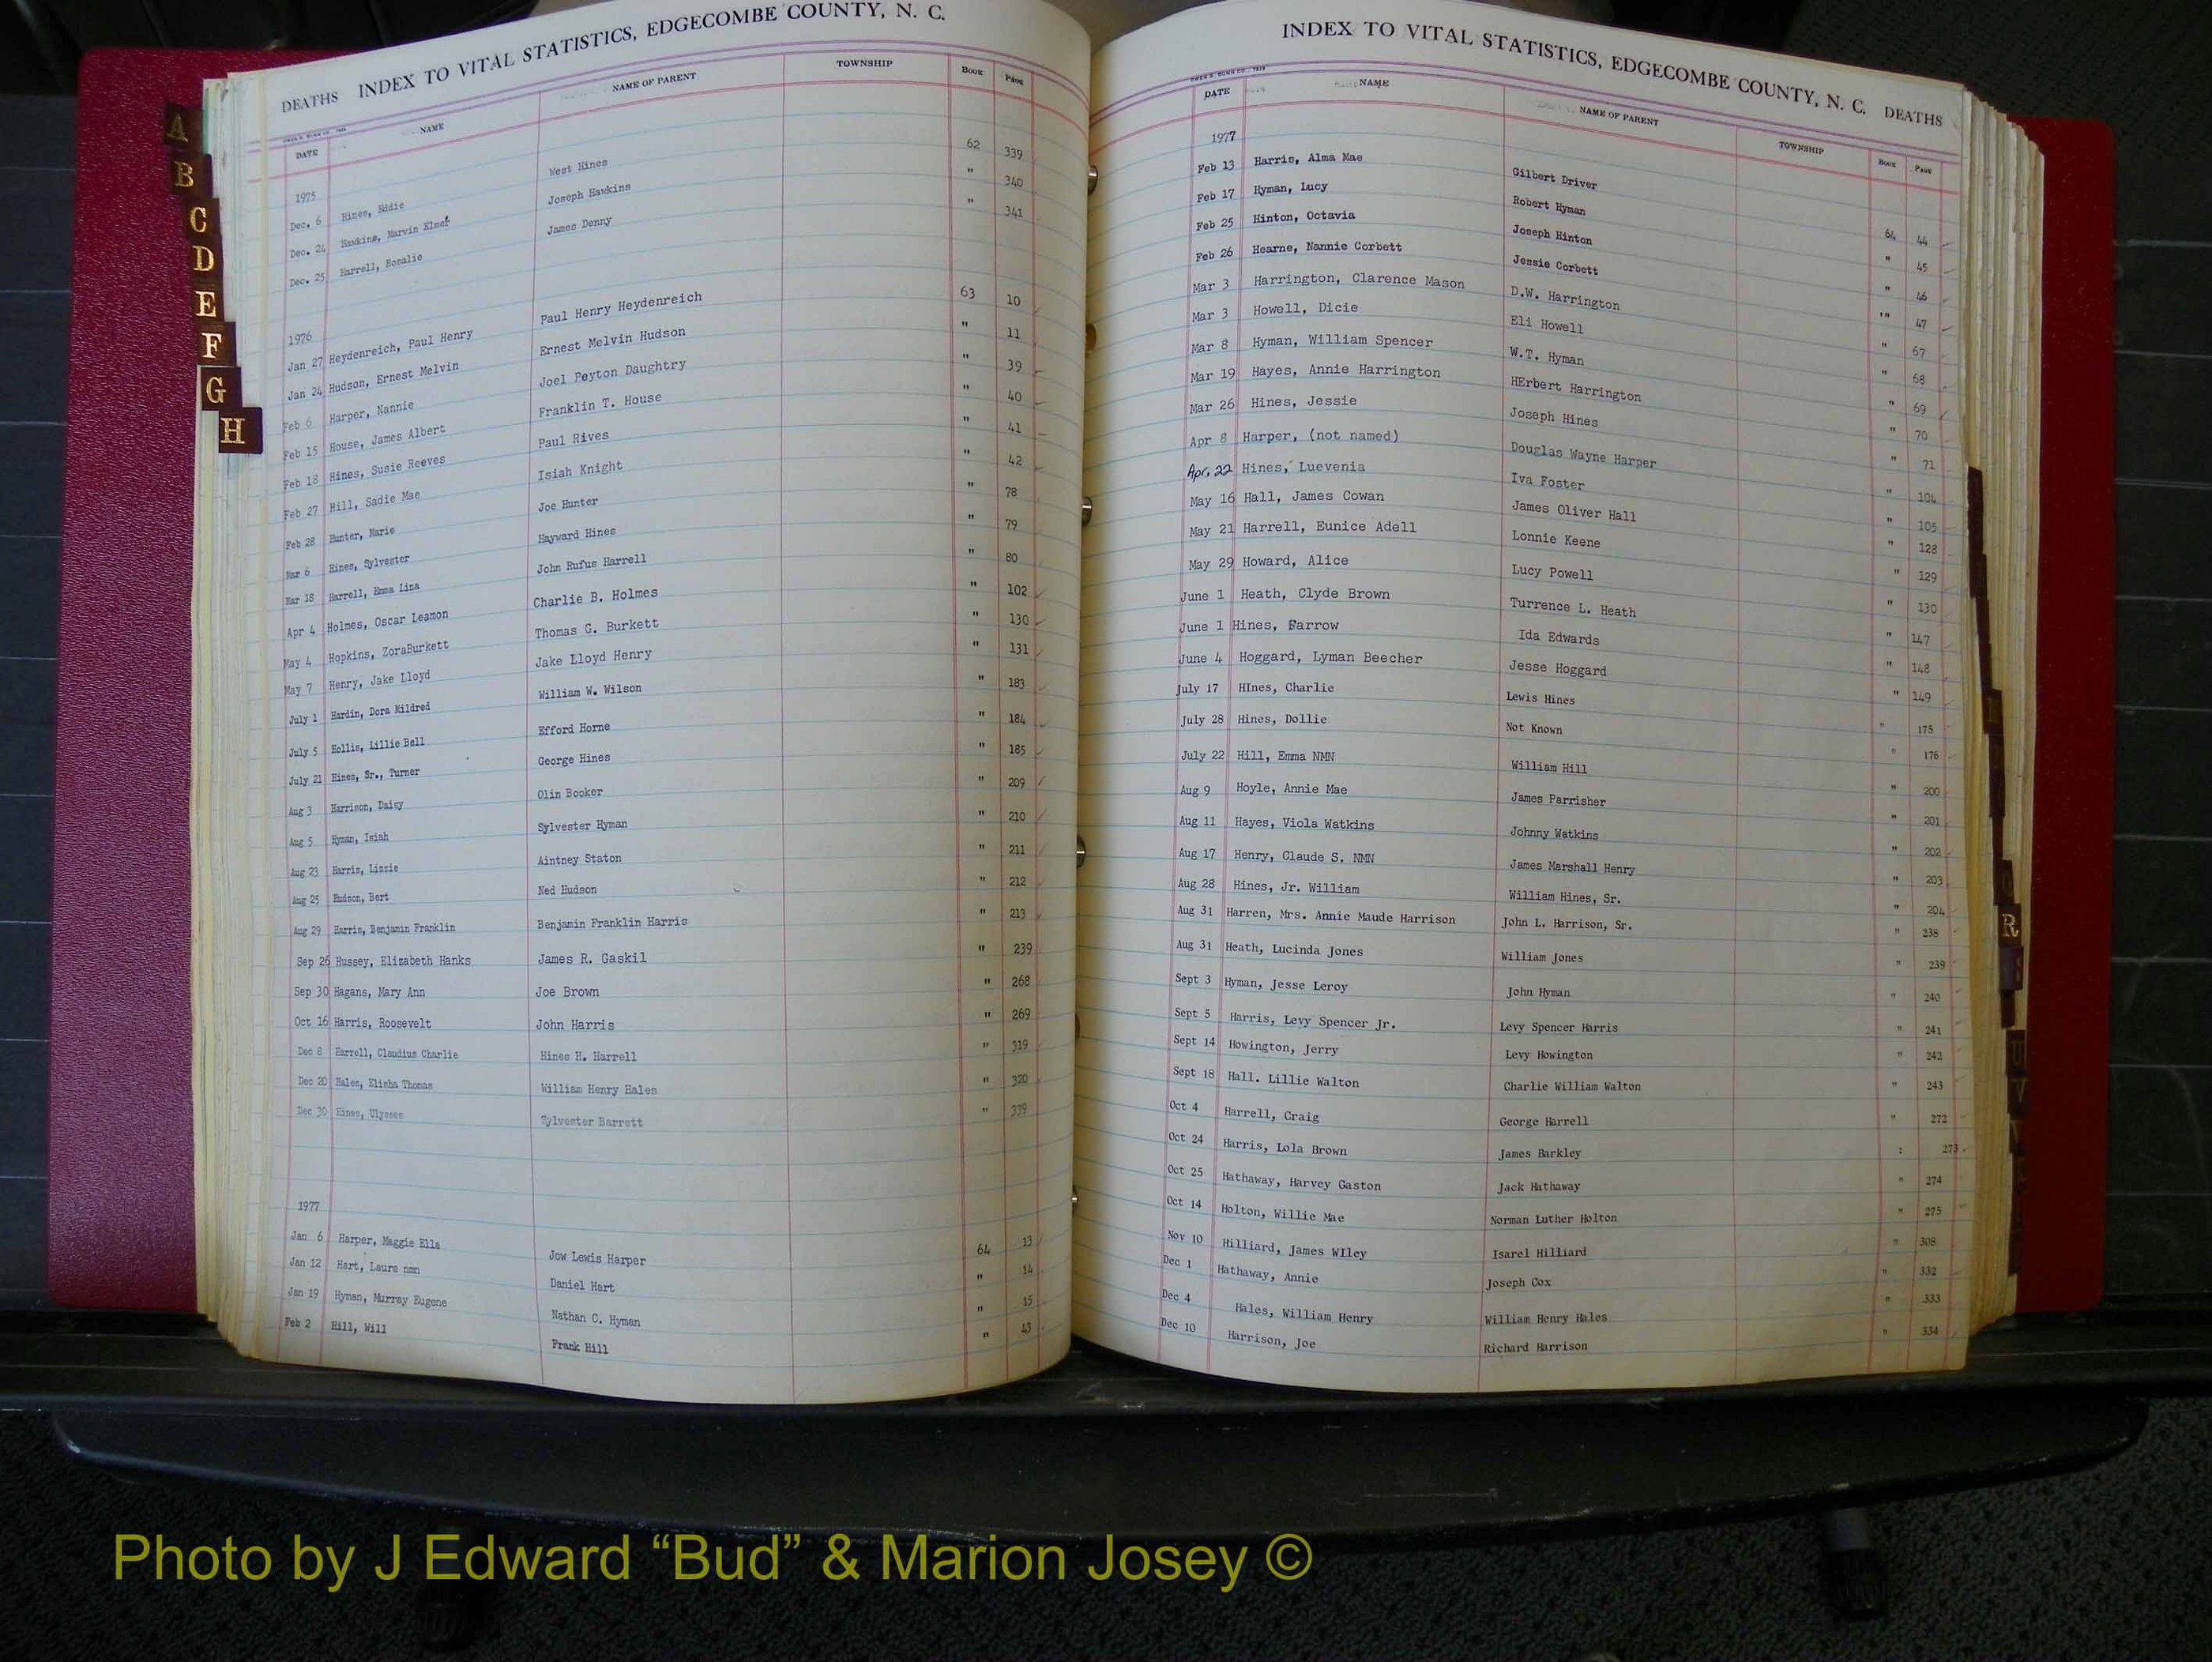 A
B
C
D
E
F
G
H
DEATHS INDEX TO VITAL STATISTICS, EDGECOMBE COUNTY, N. C.
DATE NAME NAME OF PARENT TOWNSHIP BOOK PAGE
1975
Dec. 6 Hines, Eddie West Hines 62 339
Dec. 24 Hawkins, Marvin Elmer Joseph Hawkins " 340
Dec. 25 Harrell, Rosalie James Denny " 341
1976
Jan 27 Heydenreich, Paul Henry Paul Henry Heydenreich 63 10
Jan 24 Hudson, Ernest Melvin Ernest Melvin Hudson " 11
Feb 6 Harper, Nannie Joel Peyton Daughtry " 39
Feb 15 House, James Albert Franklin T. House " 40
Feb 18 Hines, Susie Reeves Paul Rives " 41
Feb 27 Hill, Sadie Mae Isiah Knight " 42
Feb 28 Hunter, Marie Joe Hunter " 78
Mar 6 Hines, Sylvester Hayward Hines " 79
Mar 18 Harrell, Emma Lina John Rufus Harrell " 80
Apr 4 Holmes, Oscar Leamon Charlie B. Holmes " 102
May 4 Hopkins, ZoraBurkett Thomas G. Burkett " 130
May 7 Henry, Jake Lloyd Jake Lloyd Henry " 131
July 1 Hardin, Dora Mildred William W. Wilson " 183
July 5 Hollis, Lillie Bell Efford Horne " 184
July 21 Hines, Sr., Turner George Hines " 185
Aug 3 Harrison, Daisy Olin Booker " 209
Aug 5 Hyman, Isiah Sylvester Hyman " 210
Aug 23 Harris, Lizzie Aintney Staton " 211
Aug 25 Hudson, Bert Ned Hudson " 212
Aug 29 Harris, Benjamin Franklin Benjamin Franklin Harris " 213
Sep 26 Hussey, Elizabeth Hanks James R. Gaskil " 239
Sep 30 Hagans, Mary Ann Joe Brown " 268
Oct 16 Harris, Roosevelt John Harris " 269
Dec 8 Harrell, Claudius Charlie Hines H. Harrell " 319
Dec 20 Hales, Elisha Thomas William Henry Hales " 320
Dec 30 Hines, Ulysses Sylvester Barrett " 339
1977
Jan 6 Harper, Maggie Ella Jow Lewis Harper 64 13
Jan 12 Hart, Laura nmn Daniel Hart " 14
Jan 19 Hyman, Murray Eugene Nathan C. Hyman " 15
Feb 2 Hill, Will Frank Hill " 43
INDEX TO VITAL STATISTICS, EDGECOMBE COUNTY, N. C. DEATHS
DATE NAME NAME OF PARENT TOWNSHIP BOOK PAGE
1977
Feb 13 Harris, Alma Mae Gilbert Driver 64 44
Feb 17 Hyman, Lucy Robert Hyman " 45
Feb 25 Hinton, Octavia Joseph Hinton " 46
Feb 26 Hearne, Nannie Corbett Jessie Corbett " 47
Mar 3 Harrington, Clarence Mason D.W. Harrington " 67
Mar 3 Howell, Dicie Eli Howell " 68
Mar 8 Hyman, William Spencer W.T. Hyman " 69
Mar 19 Hayes, Annie Harrington HErbert Harrington " 70
Mar 26 Hines, Jessie Joseph Hines " 71
Apr 8 Harper, (not named) Douglas Wayne Harper " 104
Apr. 22 Hines, Luevenia Iva Foster " 105
May 16 Hall, James Cowan James Oliver Hall " 128
May 21 Harrell, Eunice Adell Lonnie Keene " 129
May 29 Howard, Alice Lucy Powell " 130
June 1 Heath, Clyde Brown Turrence L. Heath " 147
June 1 Hines, Farrow Ida Edwards " 148
June 4 Hoggard, Lyman Beecher Jesse Hoggard " 149
July 17 HInes, Charlie Lewis Hines " 175
July 28 Hines, Dollie Not Known " 176
July 22 Hill, Emma NMN William Hill " 200
Aug 9 Hoyle, Annie Mae James Parrisher " 201
Aug 11 Hayes, Viola Watkins Johnny Watkins " 202
Aug 17 Henry, Claude S. NMN James Marshall Henry " 203
Aug 28 Hines, Jr. William William Hines, Sr. " 204
Aug 31 Harren, Mrs. Annie Maude Harrison John L. Harrison, Sr. " 238
Aug 31 Heath, Lucinda Jones William Jones " 239
Sept 3 Hyman, Jesse Leroy John Hyman " 240
Sept 5 Harris, Levy Spencer Jr. Levy Spencer Harris " 241
Sept 14 Howington, Jerry Levy Howington " 242
Sept 18 Hall. Lillie Walton Charlie William Walton " 243
Oct 4 Harrell, Craig George Harrell " 272
Oct 24 Harris, Lola Brown James Barkley : 273
Oct 25 Hathaway, Harvey Gaston Jack Hathaway " 274
Oct 14 Holton, Willie Mae Norman Luther Holton " 275
Nov 10 Hilliard, James WIley Isarel Hilliard " 308
Dec 1 Hathaway, Annie Joseph Cox " 332
Dec 4 Hales, William Henry William Henry Hales " 333
Dec 10 Harrison, Joe Richard Harrison " 334
R
U
V
Photo by J Edward “Bud” & Marion Josey ©